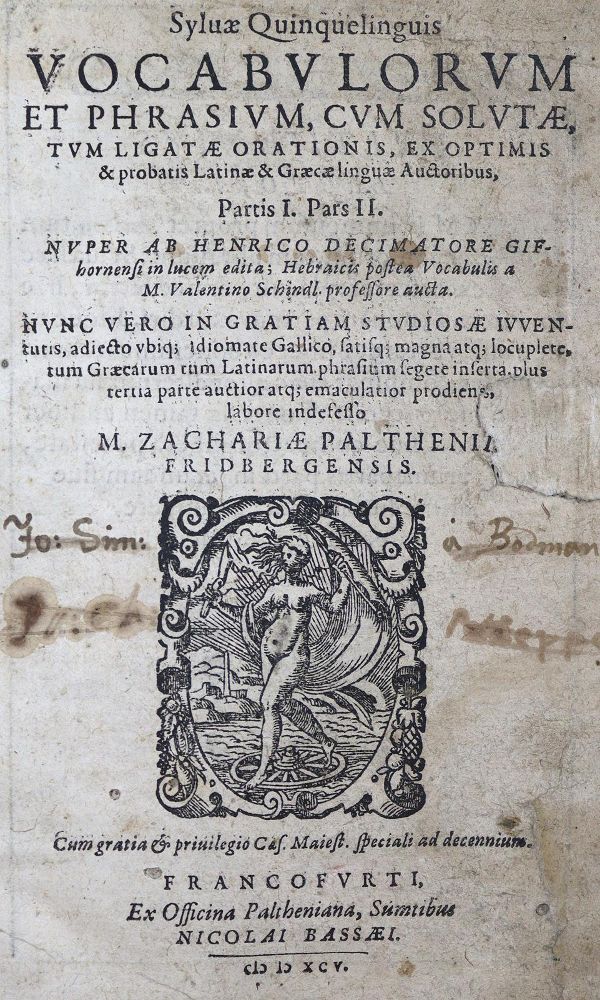 Syluæ Quinquelinguis
VOCABVLORVM
ET PHRASIVM, CVM SOLVTÆ,
TVM LIGATÆ ORATIONIS, EX OPTIMIS
& probatis Latinæ & Græcæ linguæ Auctoribus,
Partis I. Pars II.
NVPER AB HENRICO DECIMATORE GIF-
hornensi in lucem edita; Hebraicis postea Vocabulis a
M. Valentino Schindl. professore aucta.
NVNC VERO IN GRATIAM STVDIOSÆ IVVEN-
tutis, adiecto vbiq; idiomate Gallico, satisq; magna atq; locuplete,
tum Græcarum tum Latinarum phrasium segete inserta, plus
tertia parte auctior atq; emaculatior prodiens,
labore indefesso
M. ZACHARIÆ PALTHENII
FRIDBERGENSIS.
Jo: Sim: à Bodman
Cum gratia & priuilegio Cæs. Maiest. speciali ad decennium.
FRANCOFVRTI,
Ex Officina Paltheniana, Sumtibus
NICOLAI BASSÆI.
cIɔ Iɔ XCV.